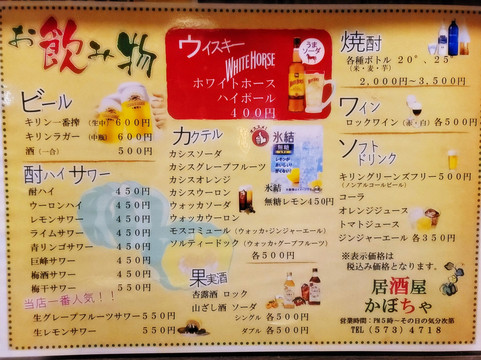 お飲み物
ビール
キリン一番搾(生中)600円
キリンラガー(中瓶)600円
酒(一合) 500円
酎ハイ サワー
酎ハイ 450円
ウーロンハイ 450円
レモンサワー 450円
ライムサワー 450円
青リンゴサワー 450円
巨峰サワー 450円
梅酒サワー 450円
梅干サワー 550円
当店一番人気!!
生グレープフルーツサワー 550円
生レモンサワー 550円
ウイスキー
WHITE HORSE
うま
ソーダ
ホワイトホース
ハイボール
400円
カクテル
カシスソーダ
カシスグレープフルーツ
カシスオレンジ
カシスウーロン
ウォッカソーダ
ウォッカウーロン
モスコミュール(ウォッカ・ジンジャーエール)
ソルティードック(ウォッカ・グープフルーツ)
各500円
氷結
無糖
氷結
無糖レモン450円
果実酒
杏露酒 ロック
山ざし酒 ソーダ
シングル 各500円
ダブル 各500円
焼酎
各種ボトル 20°、25
(米・麦・芋)
2,000円~3,500円
ワイン
ロックワイン(赤・白)各500円
ソフトドリンク
キリングリーンズフリー 500円
(ノンアルコールビール)
コーラ
オレンジジュース
トマトジュース
ジンジャーエール 各350円
※表示価格は
税込み価格となります。
居酒屋
かぼちゃ
営業時間:PM5時~その日の気分次第
TEL(573)4718